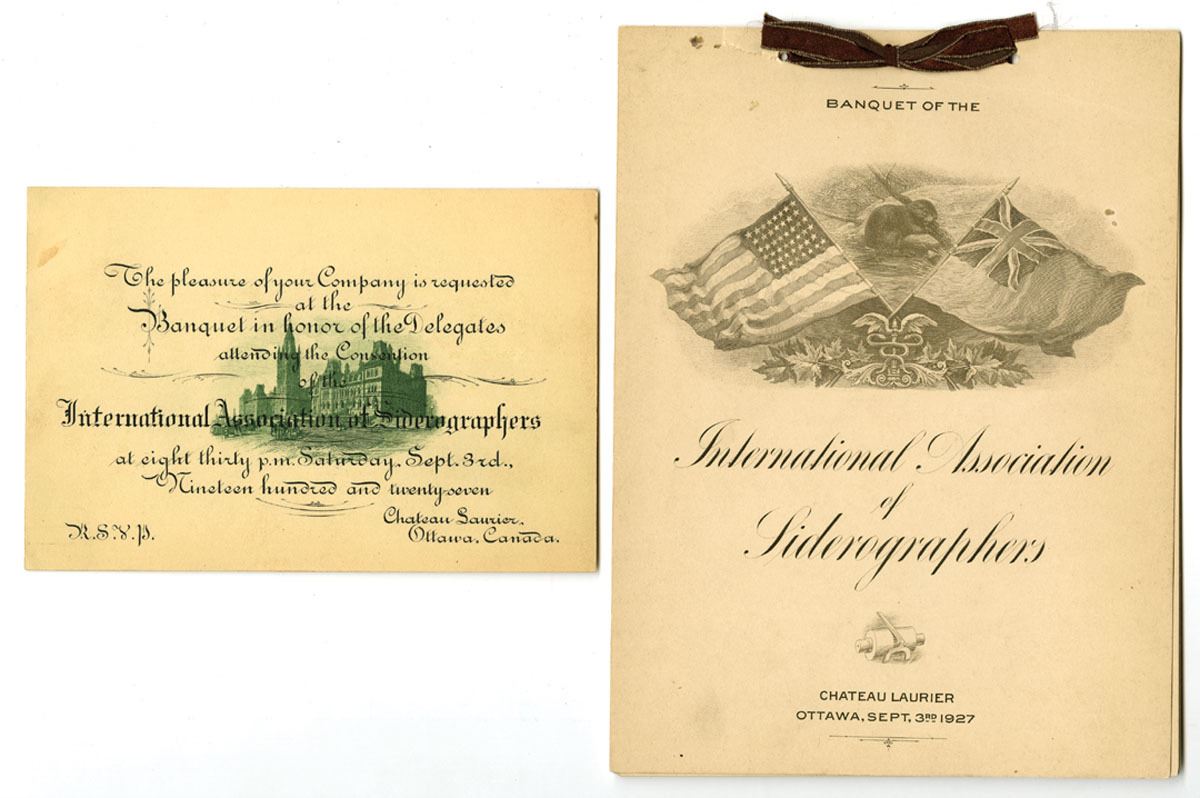 The pleasure of your Company is requested
at the
Banquet in honor of the Delegates
attending the Convention
of the
International Association of Siderographers
at eight thirty p.m. Saturday, Sept. 3rd.,
Nineteen hundred and twenty-seven
Chateau Laurier,
R.S.V.P.
Ottawa, Canada.
BANQUET OF THE
International Association
of
Siderographers
CHATEAU LAURIER
OTTAWA, SEPT, 3RD 1927